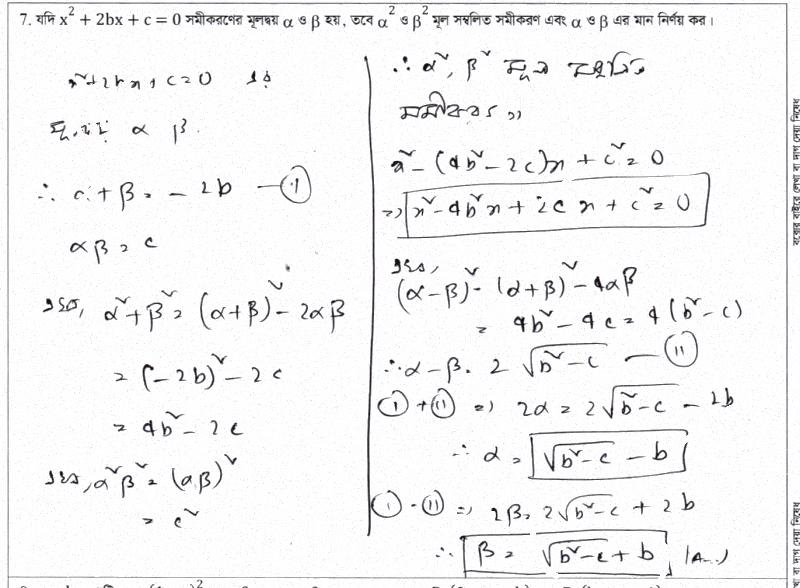 7. যদি x² + 2bx + c = 0 সমীকরণের মূলদ্বয় α ও β হয়, তবে α² ও β² মূল সম্বলিত সমীকরণ এবং α ও β এর মান নির্ণয় কর।
x² + 2bx + c = 0 এর
মূলদ্বয় α β.
∴ α + β = - 2b —(i)
αβ = c
এখন, α² + β² = (α+β)² - 2αβ
= (-2b)² - 2c
= 4b² - 2c
এখন, α²β² = (αβ)²
= c²
∴ α², β² মূল সম্বলিত
সমীকরণ,,
x² - (4b² - 2c)x + c² = 0
=> x² - 4b²x + 2cx + c² = 0
এখন,
(α-β)² = (α+β)² - 4αβ
= 4b² - 4c = 4(b² - c)
∴ α - β = 2√(b²-c) —(ii)
(i) + (ii) => 2α = 2√(b²-c) - 2b
∴ α = √(b²-c) - b
(i) - (ii) => 2β = 2√(b²-c) + 2b
∴ β = √(b²-c) + b (A..)
বক্সের বাইরে লেখা বা দাগ দেয়া নিষেধ
বা দাগ দেয়া নিষেধ